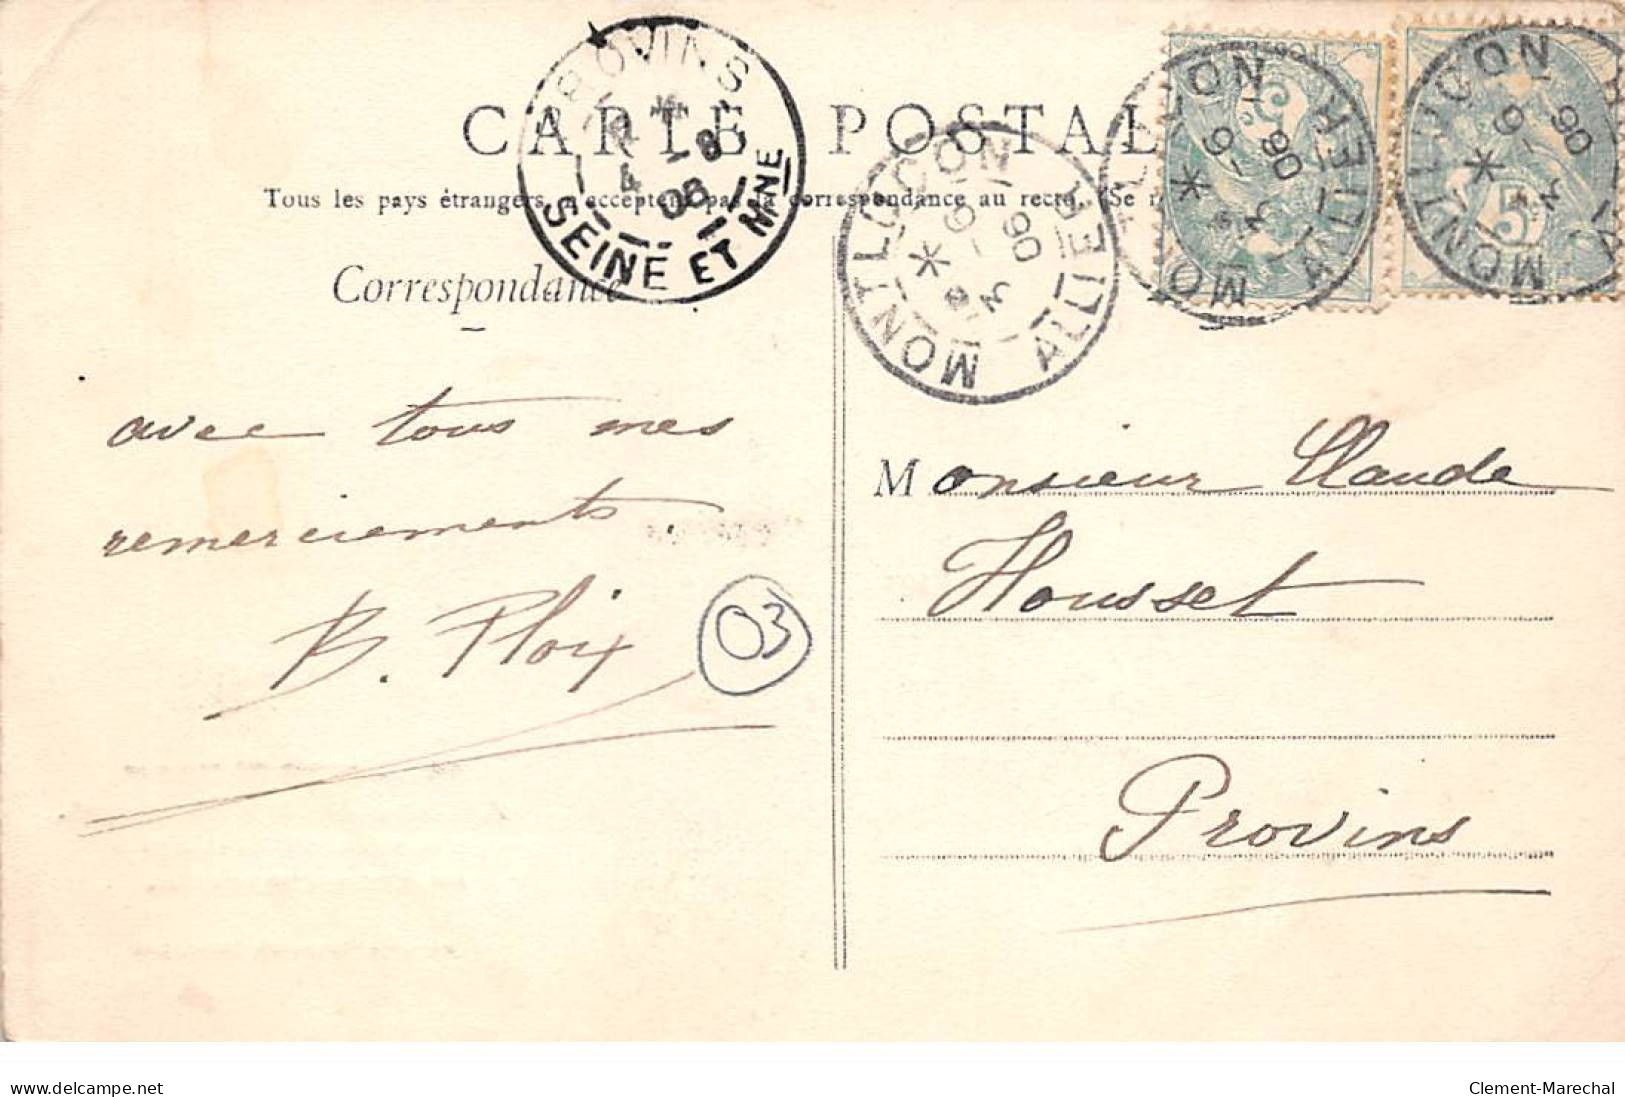 CARTE POSTALE
Tous les pays étrangers n'acceptent pas la correspondance au recto. (Se r
Correspondance
PROVINS
4 -8
06
SEINE ET MNE
MONTLUÇON
ALLIER
9 -3
06
MONTLUÇON
ALLIER
9 -3
06
MONTLUÇON
9 -3
06
5
5
avec tous mes
remerciements.
B. Ploix
03
Monsieur Claude
Housset
Provins
www.delcampe.net
Clement-Marechal